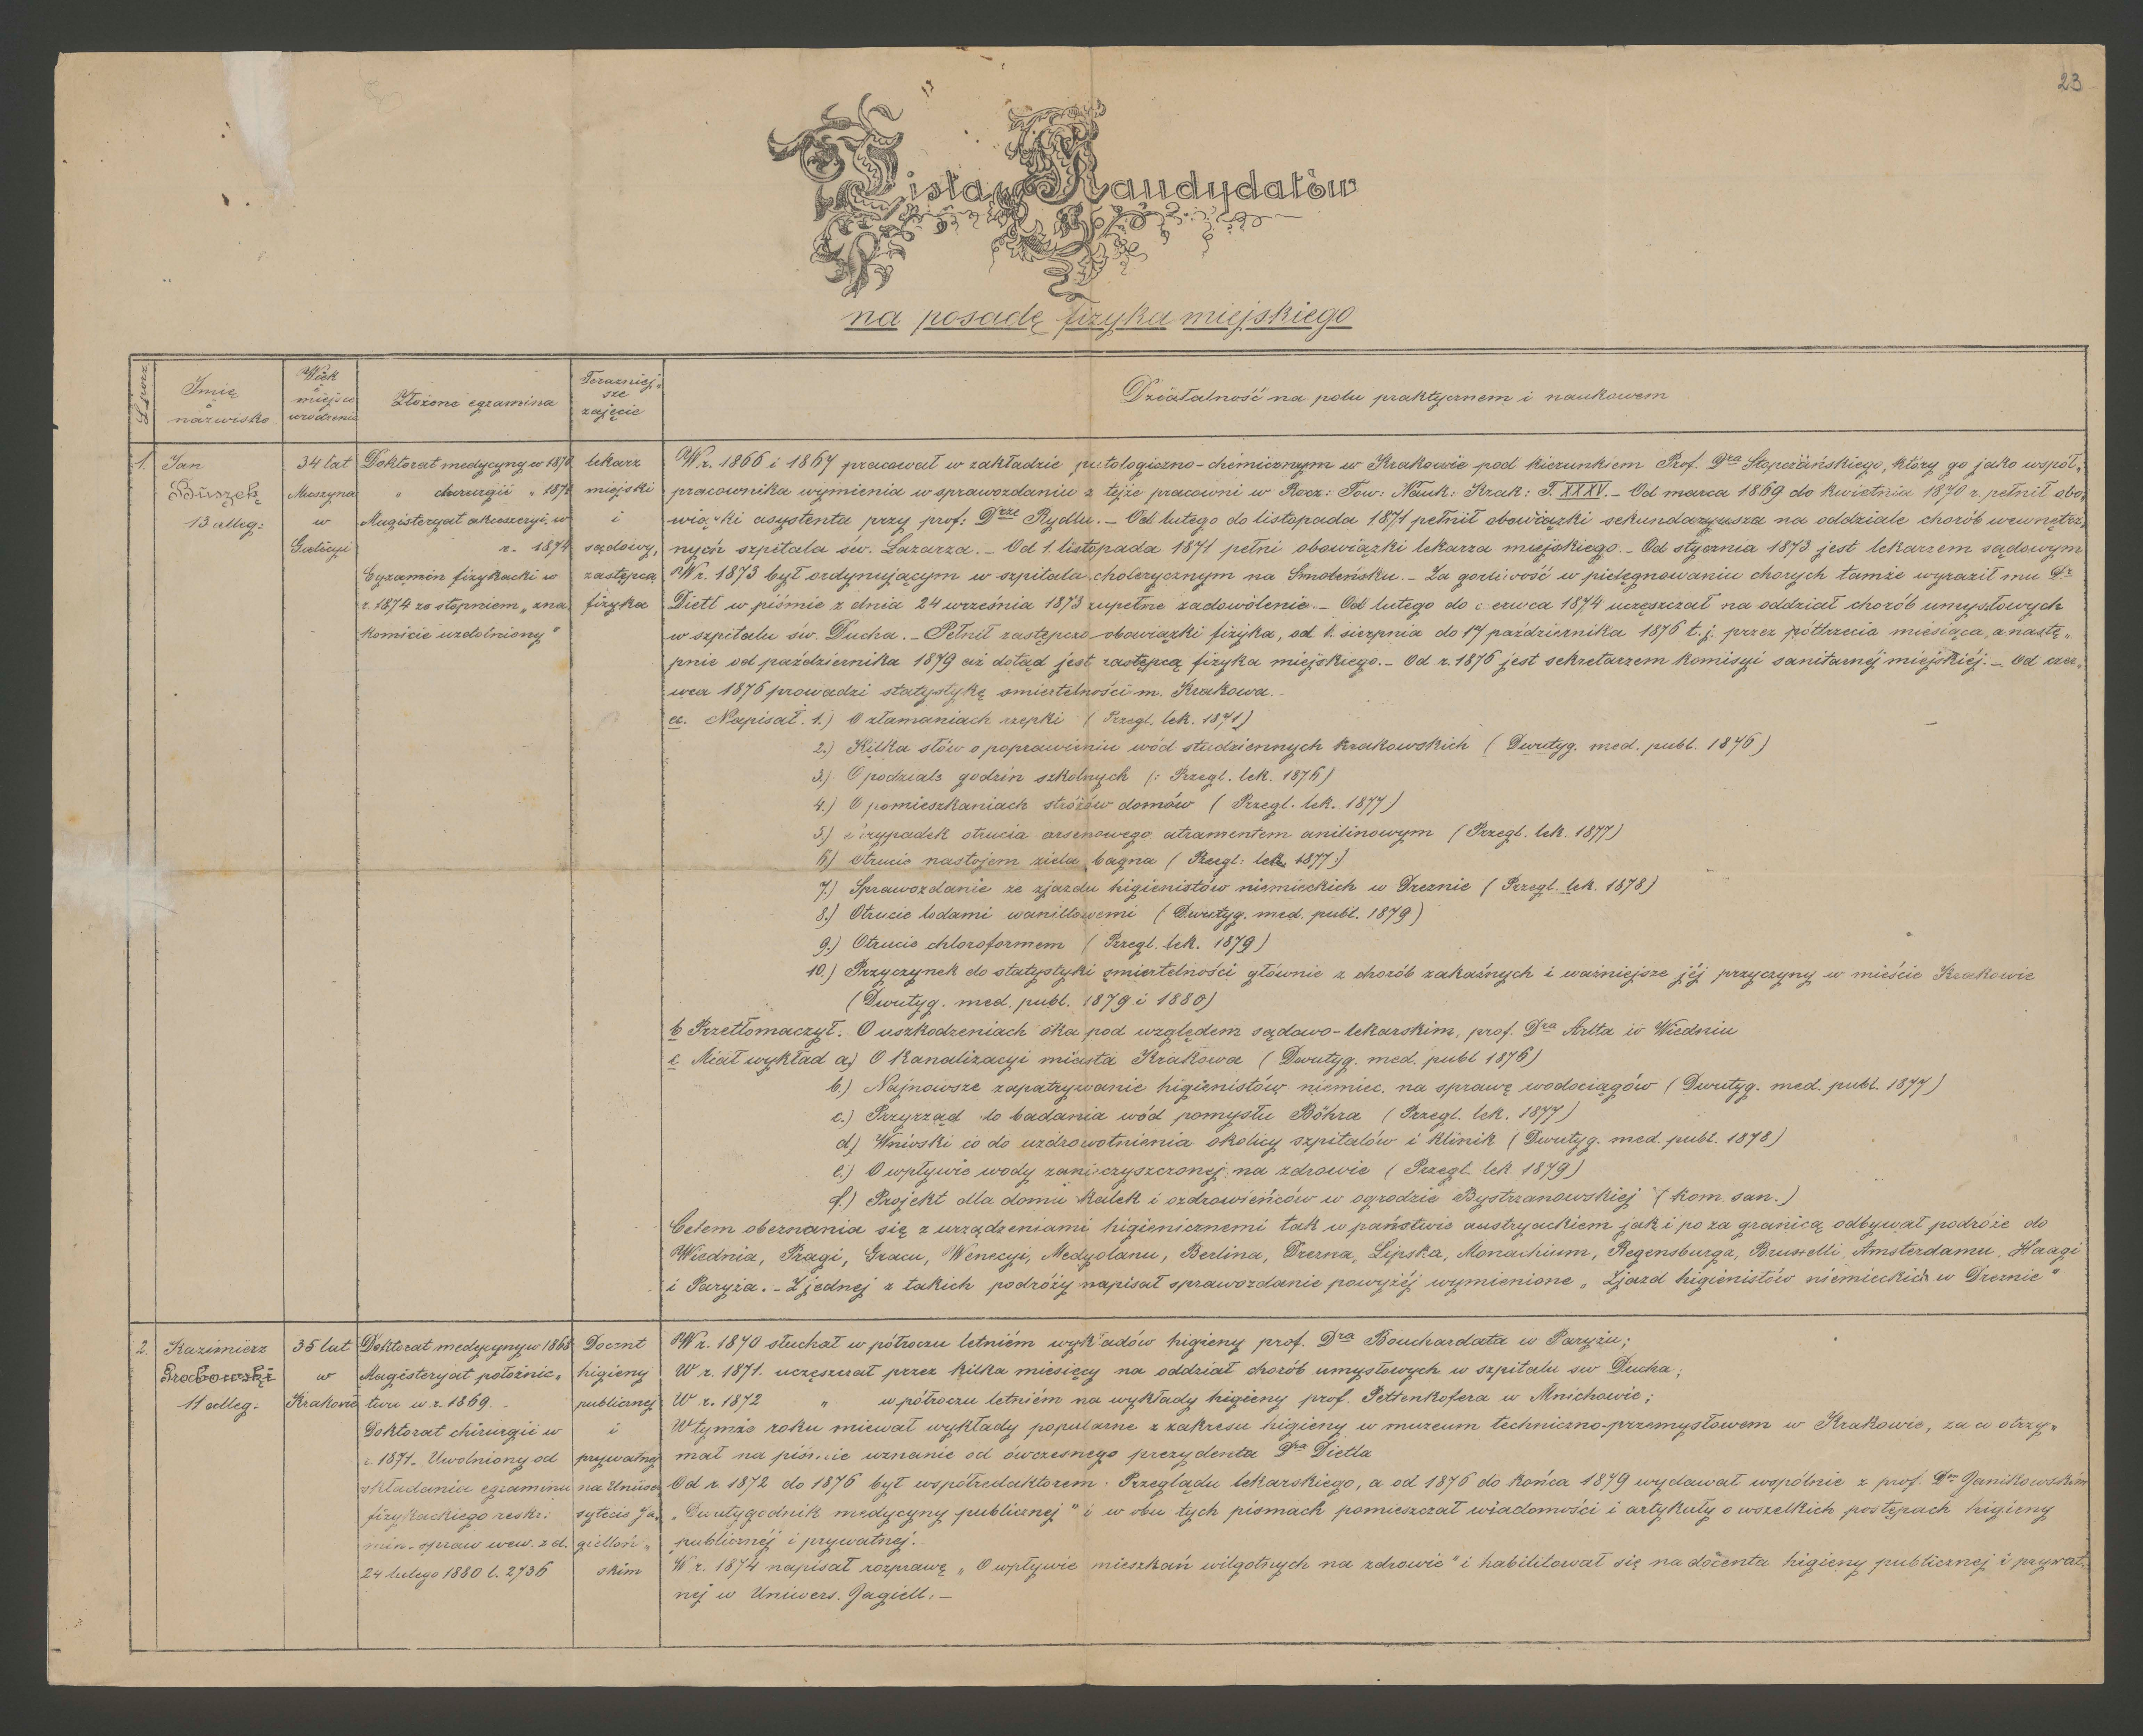 23
Lista Kandydatów
na posadę fizyka miejskiego
L. porz.
Imię
i
nazwisko
Wiek
i
miejsce
urodzenia
Złożone egzamina
Teraźniej-
sze
zajęcie
Działalność na polu praktycznem i naukowem
1.
Jan
Buszek
13 alleg:
34 lat
Muszyna
w
Galicyi
Doktorat medycyny w 1870
„ chirurgii „ 1871
Magisteryat akuszeryi w
r. 1874
Egzamin fizykacki w
r. 1874 ze stopniem „zna
komicie uzdolniony"
lekarz
miejski
i
sądowy,
zastępca
fizyka
W r. 1866 i 1867 pracował w zakładzie patologiczno-chemicznym w Krakowie pod kierunkiem Prof. Dra Stopczańskiego, który go jako współ„
pracownika wymienia w sprawozdaniu z tejże pracowni w Rocz: Tow: Nauk: Krak: T. XXXV. – Od marca 1869 do kwietnia 1870 r. pełnił obo„
wiązki asystenta przy prof: Drze Rydlu. – Od lutego do listopada 1871 pełnił obowiązki sekundaryusza na oddziale chorób wewnętrz„
nych szpitala św. Łazarza. – Od 1. listopada 1871 pełni obowiązki lekarza miejskiego. – Od stycznia 1873 jest lekarzem sądowym
W r. 1873 był ordynującym w szpitalu cholerycznym na Smoleńsku. – Za gorliwość w pielęgnowaniu chorych tamże wyraził mu Dr
Dietl w piśmie z dnia 24 września 1873 zupełne zadowolenie. – Od lutego do czerwca 1874 uczęszczał na oddział chorób umysłowych
w szpitalu św. Ducha. – Pełnił zastępczo obowiązki fizyka, od 1. sierpnia do 17 października 1876 t. j. przez półtrzecia miesiąca, a nastę„
pnie od października 1879 aż dotąd jest zastępcą fizyka miejskiego. – Od r. 1876 jest sekretarzem komisyi sanitarnéj miejskiéj. – Od czer„
wca 1876 prowadzi statystykę śmiertelności m. Krakowa. –
a. Napisał. 1.) O złamaniach rzepki ( Przegl. lek. 1871)
2.) Kilka słów o poprawieniu wód studziennych krakowskich ( Dwutyg. med. publ. 1876)
3.) O podziale godzin szkolnych (: Przegl. lek. 1876)
4.) O pomieszkaniach stróżów domów ( Przegl. lek. 1877)
5.) Przypadek otrucia arsenowego atramentem anilinowym ( Przegl. lek. 1877)
6.) Otrucie nastojem ziela bagna ( Przegl: lek. 1877:)
7.) Sprawozdanie ze zjazdu higienistów niemieckich w Dreznie ( Przegl. lek. 1878)
8.) Otrucie lodami waniliowemi ( Dwutyg. med. publ. 1879)
9.) Otrucie chloroformem ( Przegl. lek. 1879)
10.) Przyczynek do statystyki śmiertelności głównie z chorób zakaźnych i ważniejsze jéj przyczyny w mieście Krakowie
(Dwutyg. med. publ. 1879 i 1880)
b Przetłomaczył. O uszkodzeniach oka pod względem sądowo-lekarskim, prof. Dra Arlta w Wiedniu
c Miał wykład a.) O Kanalizacyi miasta Krakowa ( Dwutyg. med. publ 1876)
b.) Najnowsze zapatrywanie higienistów niemiec. na sprawę wodociągów ( Dwutyg. med. publ. 1877)
c.) Przyrząd do badania wód pomysłu Böhra ( Przegl. lek. 1877)
d) Wnioski co do uzdrowotnienia okolicy szpitalów i klinik ( Dwutyg. med. publ. 1878)
e.) O wpływie wody zanieczyszczonej na zdrowie ( Przegl. lek 1879)
f.) Projekt dla domu kalek i ozdrowieńców w ogrodzie Bystrzanowskiej ( kom. san.)
Celem obeznania się z urządzeniami higienicznemi tak w państwie austryackiem jak i po za granicą odbywał podróże do
Wiednia, Pragi, Gracu, Wenecyi, Medyolanu, Berlina, Drezna, Lipska, Monachium, Regensburga, Brukselli, Amsterdamu, Haagi
i Paryża. – Z jednej z takich podróży napisał sprawozdanie powyżéj wymienione „Zjazd higienistów niemieckich w Dreznie"
2.
Kazimierz
Grabowski
11 alleg:
35 lat
w
Krakowie
Doktorat medycyny w 1868
Magisteryat położnic„
twa w r. 1869. –
Doktorat chirurgii w
r. 1871. Uwolniony od
składania egzaminu
fizykackiego reskr:
min. spraw wew. z d.
24 lutego 1880 l. 2736
Docent
higieny
publicznej
i
prywatnej
na Uniwer
sytecie Ja„
gielloń„
skim
W r. 1870 słuchał w półroczu letniém wykładów higieny prof. Dra Bouchardata w Paryżu;
W r. 1871. uczęszczał przez kilka miesięcy na oddział chorób umysłowych w szpitalu św Ducha;
W r. 1872 „ w półroczu letniém na wykłady higieny prof. Pettenkofera w Mnichowie;
W tymże roku miewał wykłady popularne z zakresu higieny w muzeum techniczno-przemysłowem w Krakowie, za co otrzy„
mał na piśmie uznanie od ówczesnego prezydenta Dra Dietla
Od r. 1872 do 1876 był współredaktorem Przeglądu lekarskiego, a od 1876 do końca 1879 wydawał wspólnie z prof. Drem Janikowskim
„Dwutygodnik medycyny publicznej" i w obu tych pismach pomieszczał wiadomości i artykuły o wszelkich postępach higieny
publicznéj i prywatnej. –
W r. 1874 napisał rozprawę „O wpływie mieszkań wilgotnych na zdrowie" i habilitował się na docenta higieny publicznej i prywat„
nej w Uniwers. Jagiell: –